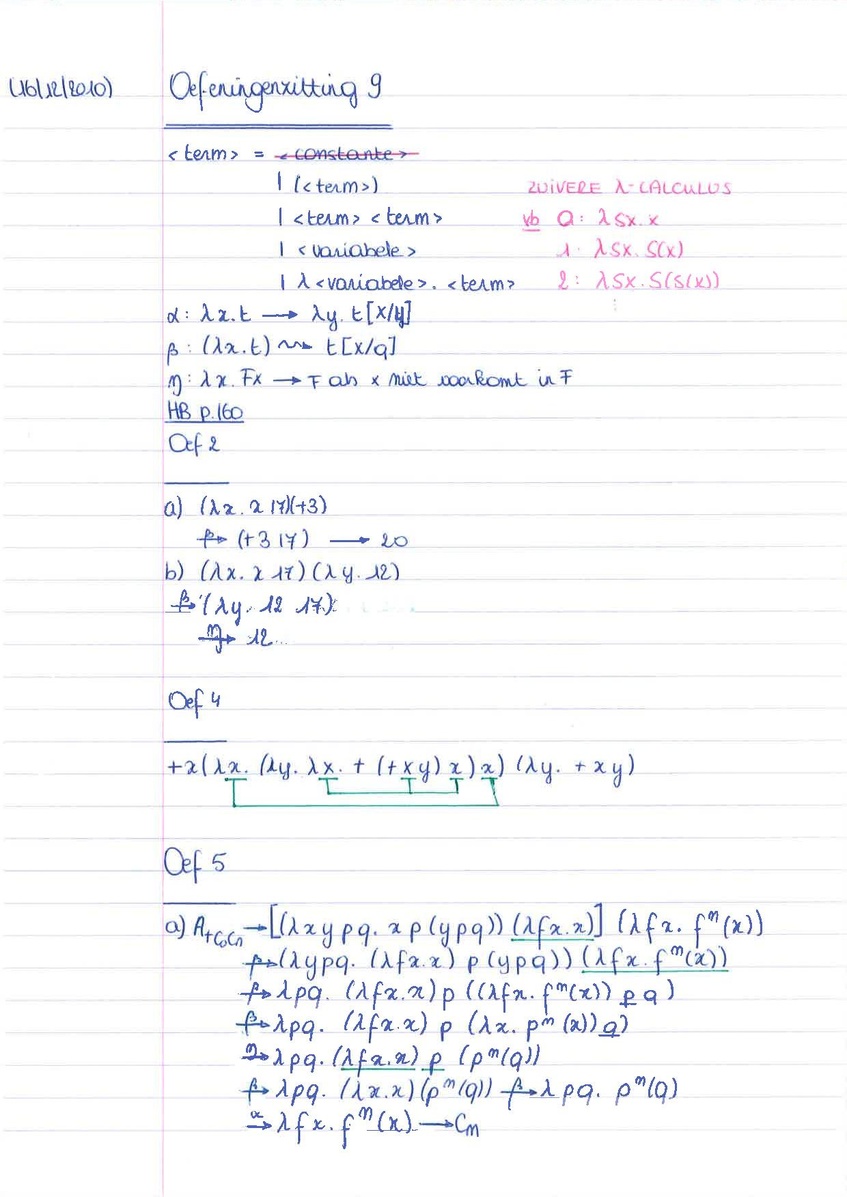 (16/12/2010) Oefeningenzitting 9
<term> = <constante>
| (<term>) ZUIVERE λ-CALCULUS
| <term> <term> vb 0: λSx.x
| <variabele> 1: λSx.S(x)
| λ<variabele>.<term> 2: λSx.S(S(x))
α: λx.t → λy.t[x/y]
β: (λx.t) ⇝ t[x/q]
η: λx.Fx → F als x niet voorkomt in F
HB p.160
Oef 2
a) (λx.x 17)(+3)
β→ (+3 17) → 20
b) (λx.x 17)(λy.12)
β→ (λy.12 17)
η→ 12
Oef 4
+x(λx.(λy.λx.+(+xy)x)x)(λy.+xy)
Oef 5
a) A+C₀Cn → [(λxypq.xp(ypq))(λfx.x)](λfx.fⁿ(x))
β→ (λypq.(λfx.x)p(ypq))(λfx.fⁿ(x))
β→ λpq.(λfx.x)p((λfx.fⁿ(x))pq)
β→ λpq.(λfx.x)p(λx.pⁿ(x))q)
η→ λpq.(λfx.x)p(pⁿ(q))
β→ λpq.(λx.x)(pⁿ(q)) β→ λpq.pⁿ(q)
α→ λfx.fⁿ(x) → Cn